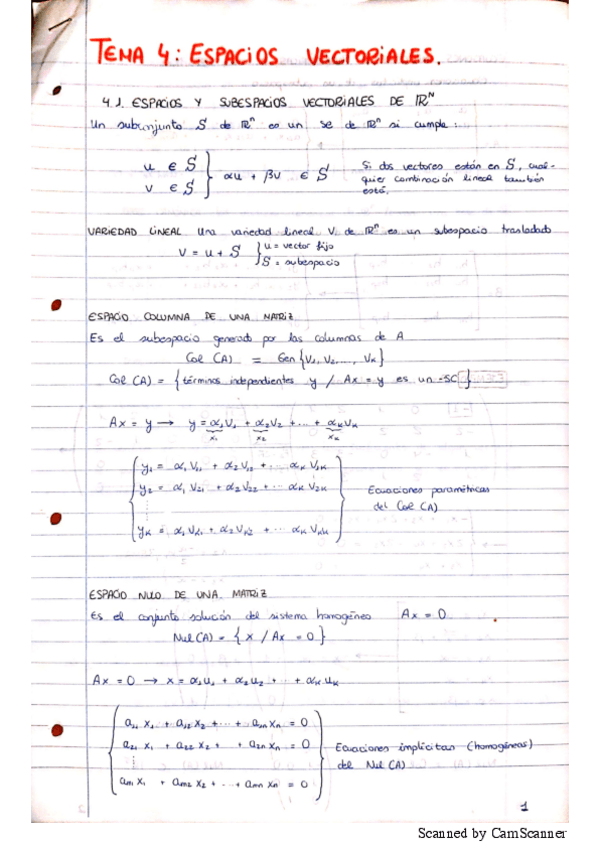 TEMA 4: ESPACIOS VECTORIALES.
4.1. ESPACIOS Y SUBESPACIOS VECTORIALES DE ℝᴺ
Un subconjunto S de ℝⁿ es un se de ℝⁿ si cumple:
u ∈ S
v ∈ S } αu + βv ∈ S
Si dos vectores están en S, cual-
quier combinación lineal también
está.
VARIEDAD LINEAL Una variedad lineal V. de ℝⁿ es un subespacio trasladado
V = u + S } u = vector fijo
S = subespacio
ESPACIO COLUMNA DE UNA MATRIZ
Es el subespacio generado por las columnas de A
Col (A) = Gen {V₁, V₂, ..., Vₖ}
Col (A) = {términos independientes y / Ax = y es un SC}
Ax = y → y = α₁V₁ + α₂V₂ + ... + αₖVₖ
x₁ x₂ xₖ
y₁ = α₁V₁₁ + α₂V₁₂ + ... αₖV₁ₖ
y₂ = α₁V₂₁ + α₂V₂₂ + ... αₖV₂ₖ
⋮
yₖ = α₁Vₖ₁ + α₂Vₖ₂ + ... αₖVₖₖ
Ecuaciones paramétricas
del Col (A)
ESPACIO NULO DE UNA MATRIZ
Es el conjunto solución del sistema homogéneo Ax = 0
Nul (A) = {x / Ax = 0}
Ax = 0 → x = α₁u₁ + α₂u₂ + ... + αₖuₖ
a₁₁x₁ + a₁₂x₂ + ... + a₁ₙxₙ = 0
a₂₁x₁ + a₂₂x₂ + ... + a₂ₙxₙ = 0
aₘ₁x₁ + aₘ₂x₂ + ... + aₘₙxₙ = 0
Ecuaciones implícitas (homogéneas)
del Nul (A)
1
Scanned by CamScanner